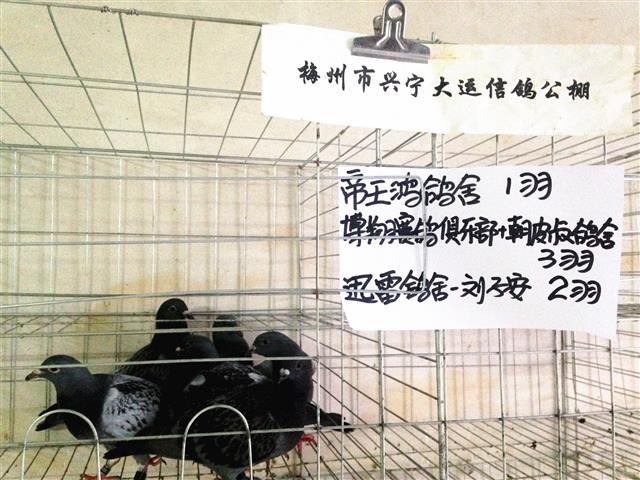 梅州市兴宁大运信鸽公棚
帝王鸿鸽舍 1羽
博翔赛鸽俱乐部+朝皮叔鸽舍
3羽
迅雷鸽舍-刘不安 2羽